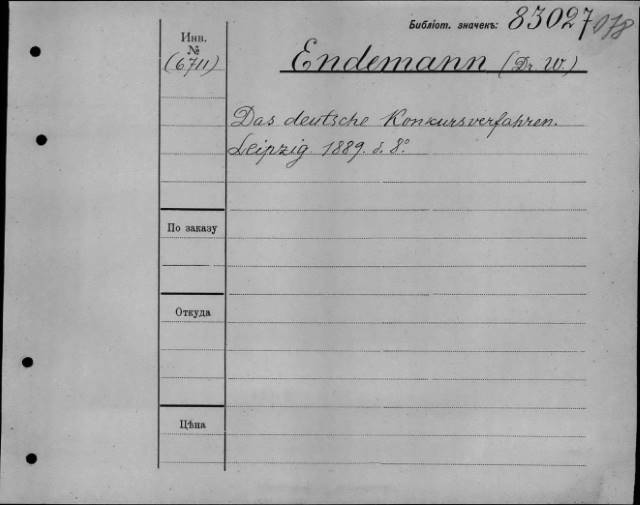 Библіот. значекъ: 83027/078
Инв.
№
(6711)
Endemann (Dr. W.)
Das deutsche Konkursverfahren.
Leipzig 1889. d. 8°
По заказу
Откуда
Цѣна